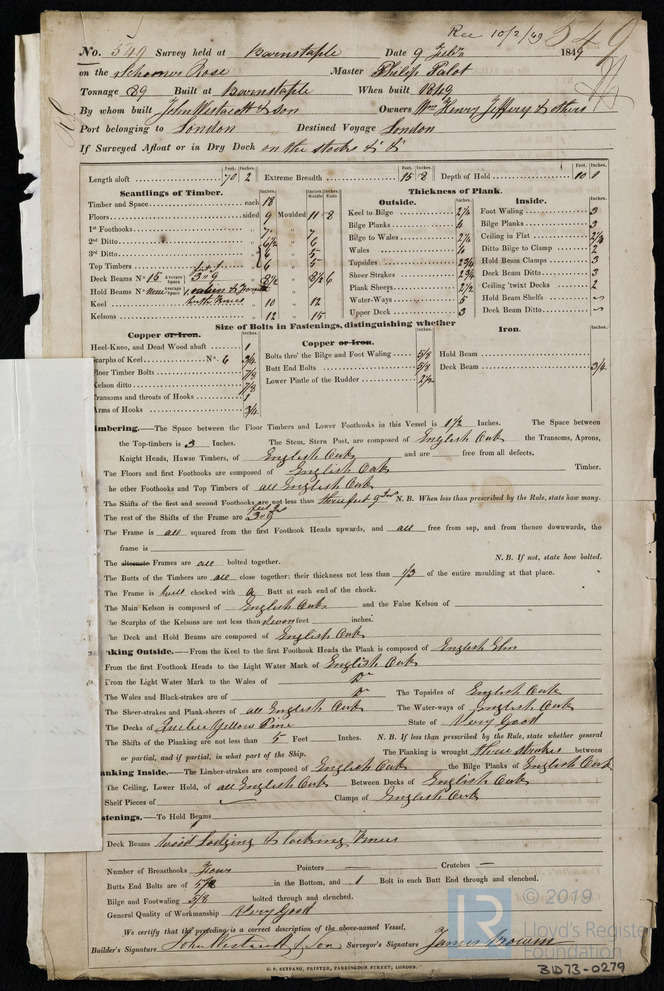 Rec 10/2/49 549
No. 549 Survey held at Barnstaple Date 9 Feby 1849
on the Schooner Rose Master Philip Salot
Tonnage 89 Built at Barnstaple When built 1849
By whom built John Westacott & son Owners Wm Henry Jeffery & others
Port belonging to London Destined Voyage London
If Surveyed Afloat or in Dry Dock on the stocks & &
Feet. Inches. Feet. Inches. Feet. Inches.
Length aloft 70 2 Extreme Breadth 15 8 Depth of Hold 10 1
Scantlings of Timber.
Timber and Space each 18
Floors sided 9 Moulded 11 8
1st Foothooks 7 7
2nd Ditto 6½ 6
3rd Ditto 6 5
Top Timbers 6 5
Deck Beams No 15 Average Space 3 9 8½ 8½ 6
Hold Beams No None Average Space
Keel 10 12
Kelsons 12 15
Thickness of Plank.
Outside.
Keel to Bilge 2½
Bilge Planks 4
Bilge to Wales 2½
Wales 4
Topsides 2¾
Sheer Strakes 2¾
Plank Sheers 2½
Water-Ways 5
Upper Deck 3
Inside.
Foot Waling 3
Bilge Planks 3
Ceiling in Flat 2½
Ditto Bilge to Clamp 2
Hold Beam Clamps 3
Deck Beam Ditto 3
Ceiling 'twixt Decks 2
Hold Beam Shelfs
Deck Beam Ditto
Size of Bolts in Fastenings, distinguishing whether
Copper or Iron.
Heel-Knee, and Dead Wood abaft 1
Scarphs of Keel No. 6 3/4
Floor Timber Bolts 7/8
Kelson ditto 7/8
Transoms and throats of Hooks 1
Arms of Hooks 3/4
Copper or Iron.
Bolts thro' the Bilge and Foot Waling 5/8
Butt End Bolts 5/8
Lower Pintle of the Rudder 2½
Iron.
Hold Beam
Deck Beam 3/4
mbering.—The Space between the Floor Timbers and Lower Foothooks in this Vessel is 1½ Inches. The Space between
the Top-timbers is 3 Inches. The Stem, Stern Post, are composed of English Oak the Transoms, Aprons,
Knight Heads, Hawse Timbers, of English Oak and are free from all defects.
The Floors and first Foothooks are composed of English Oak Timber.
The other Foothooks and Top Timbers of all English Oak
The Shifts of the first and second Foothooks are not less than three feet 9 ins N. B. When less than prescribed by the Rule, state how many.
The rest of the Shifts of the Frame are 3 9
The Frame is all squared from the first Foothook Heads upwards, and all free from sap, and from thence downwards, the
frame is
The alternate Frames are all bolted together. N. B. If not, state how bolted.
The Butts of the Timbers are all close together; their thickness not less than 1/3 of the entire moulding at that place.
The Frame is well chocked with a Butt at each end of the chock.
The Main Kelson is composed of English Oak and the False Kelson of
The Scarphs of the Kelsons are not less than seven feet inches.
The Deck and Hold Beams are composed of English Oak
nking Outside.—From the Keel to the first Foothook Heads the Plank is composed of English Elm
From the first Foothook Heads to the Light Water Mark of English Oak
From the Light Water Mark to the Wales of Do
The Wales and Black-strakes are of Do The Topsides of English Oak
The Sheer-strakes and Plank-sheers of all English Oak The Water-ways of English Oak
The Decks of Quebec Yellow Pine State of Very Good
The Shifts of the Planking are not less than 5 Feet Inches. N. B. If less than prescribed by the Rule, state whether general
or partial, and if partial, in what part of the Ship. The Planking is wrought three strakes between
anking Inside.—The Limber-strakes are composed of English Oak the Bilge Planks of English Oak
The Ceiling, Lower Hold, of all English Oak Between Decks of English Oak
Shelf Pieces of Clamps of English Oak
stenings.—To Hold Beams
Deck Beams wood Lodging & locking Knees
Number of Breasthooks Four Pointers Crutches
Butts End Bolts are of 5/8 in the Bottom, and 1 Bolt in each Butt End through and clenched.
Bilge and Footwaling 5/8 bolted through and clenched.
General Quality of Workmanship Very Good
We certify that the preceding is a correct description of the above-named Vessel,
Builder's Signature John Westacott & Son Surveyor's Signature James Bowen
G. F. SEYFANG, PRINTER, FARRINGDON STREET, LONDON.
LR © 2019
Lloyd's Register
Foundation
BID73-0279